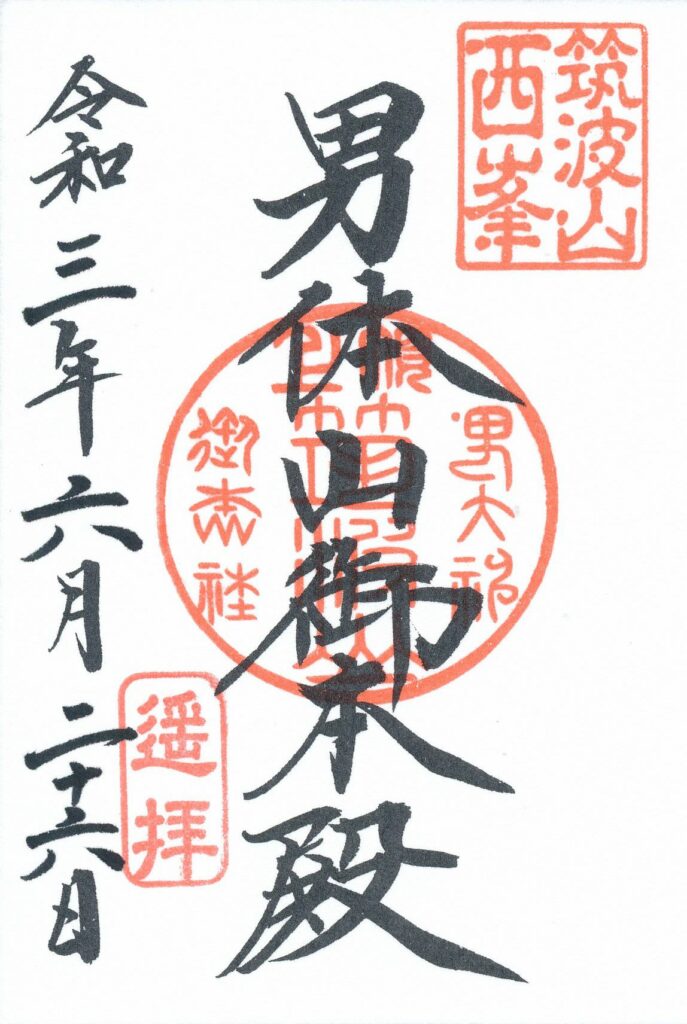 筑波山
西峯
男体山御本殿
男大神
御本社
遥拝
令和三年六月二十六日